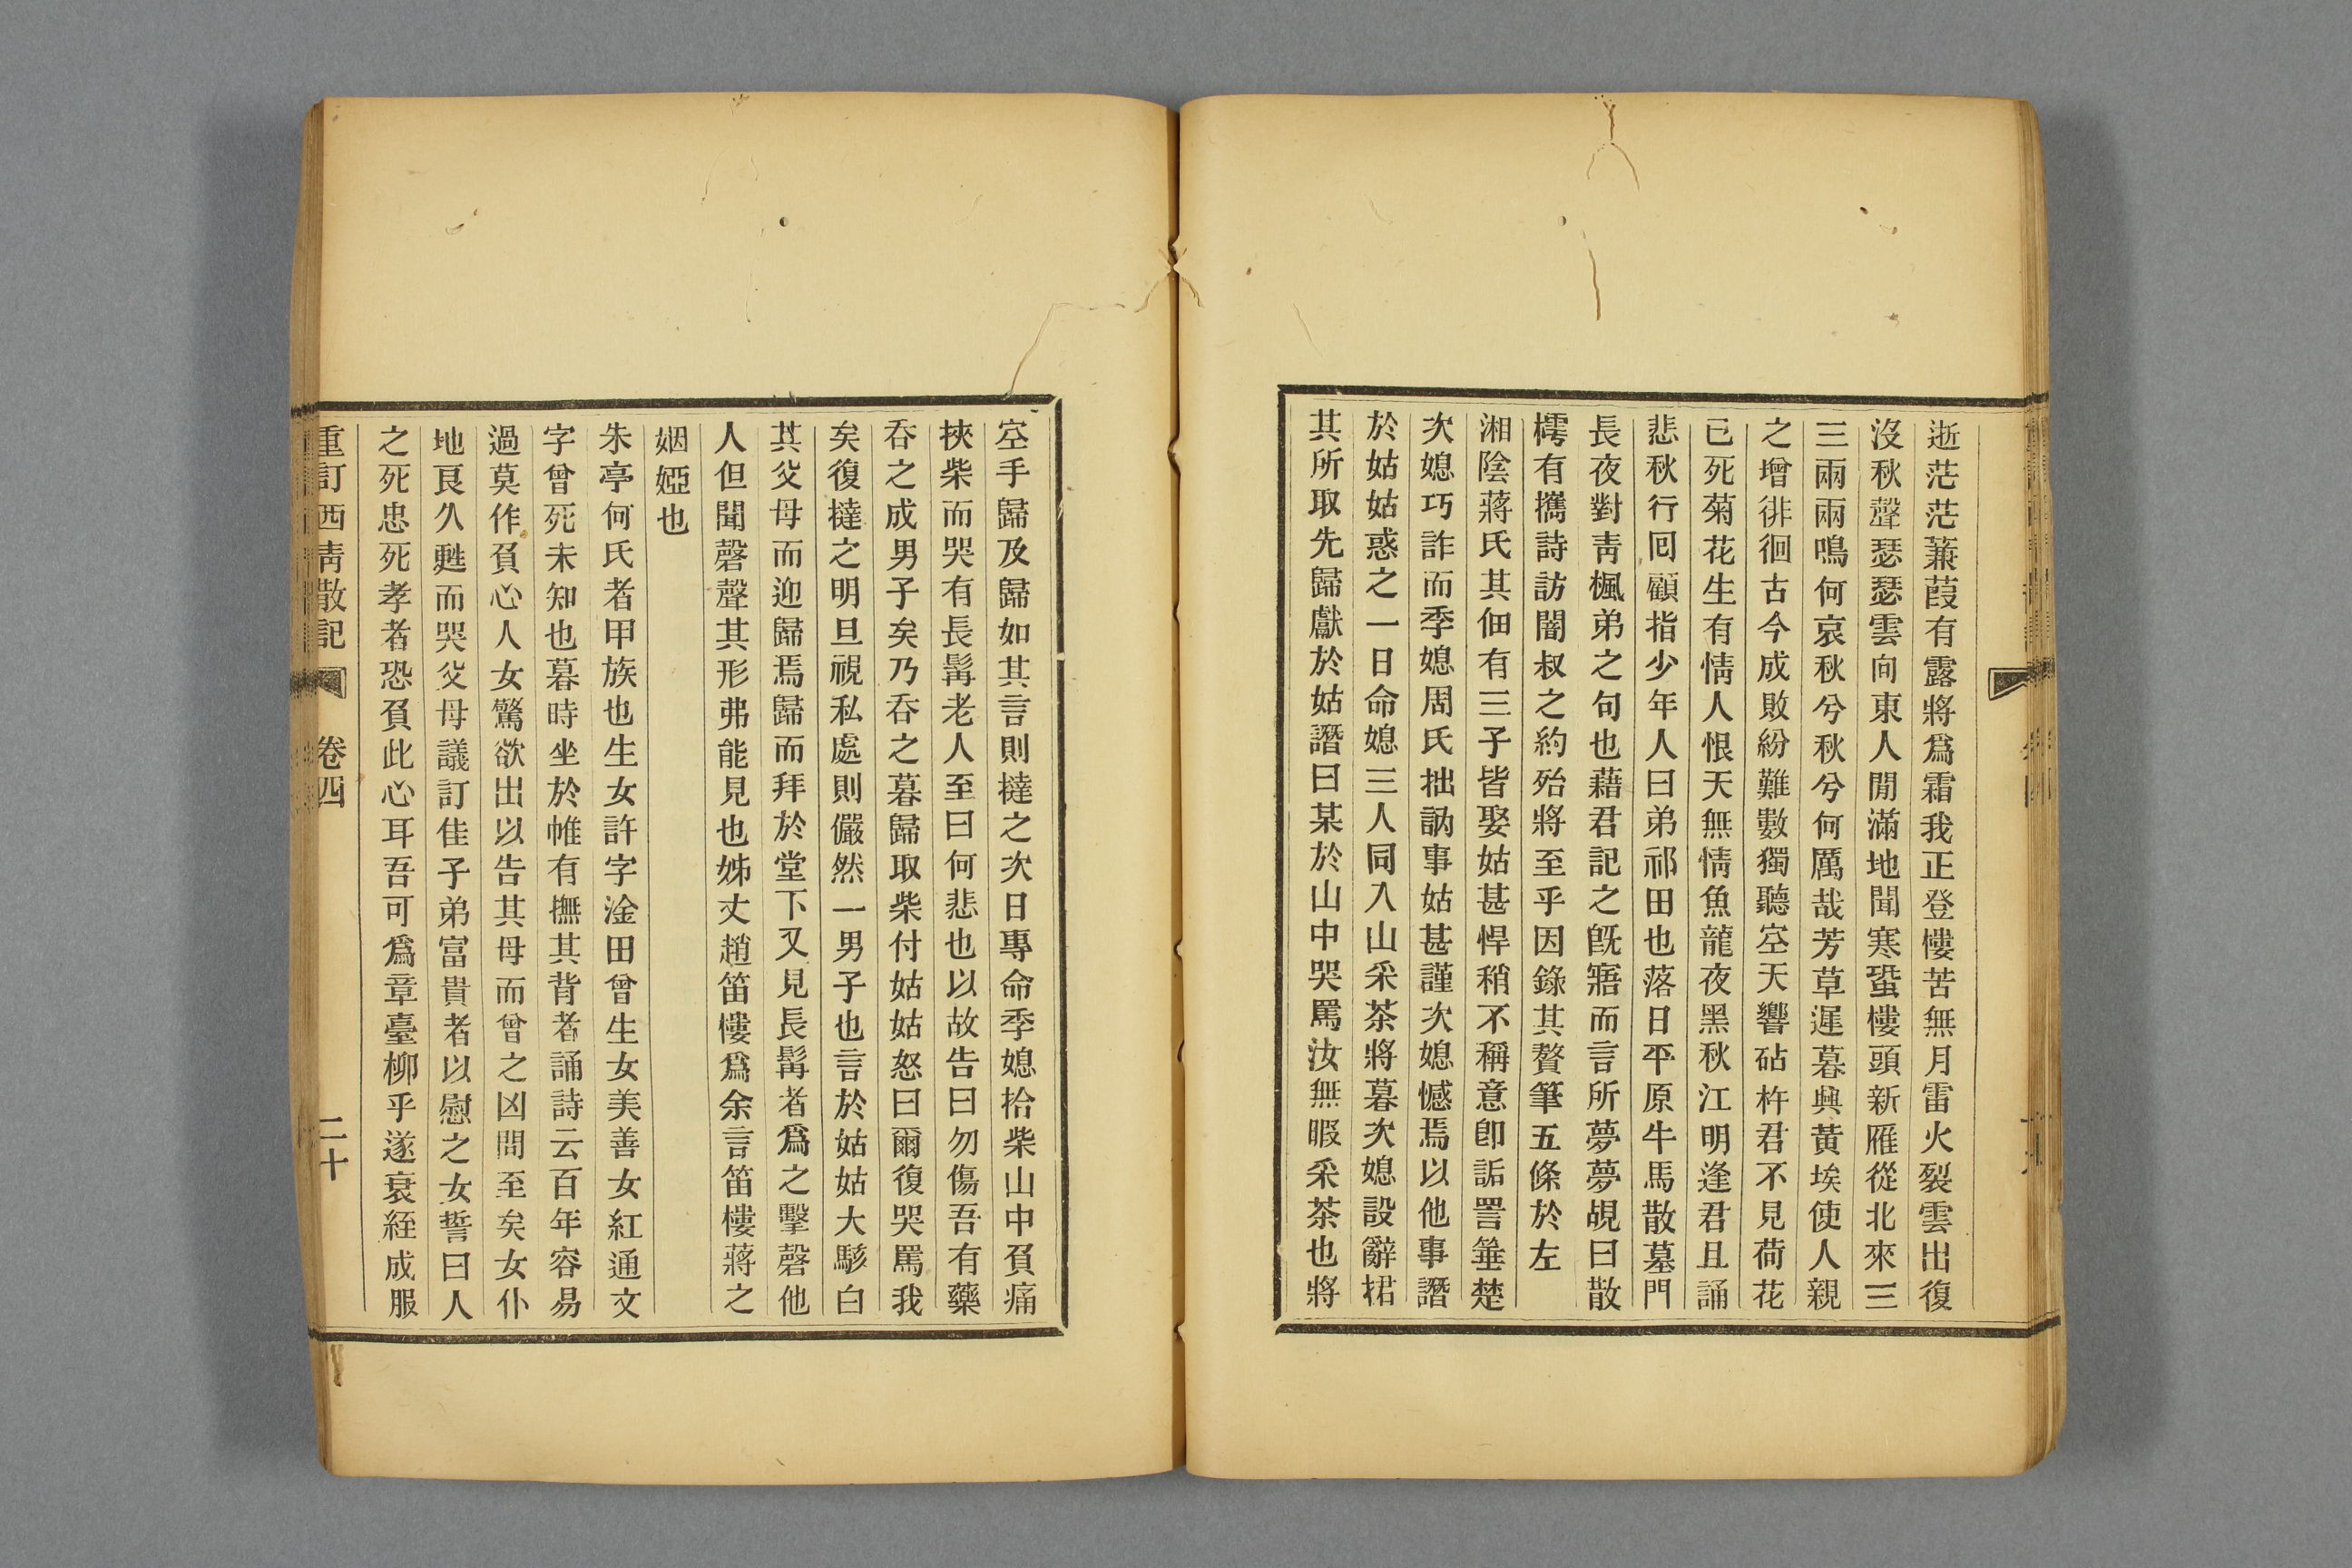 逝茫茫蒹葭有露將爲霜我正登樓苦無月雷火裂雲出復
沒秋聲瑟瑟雲向東人閒滿地聞寒蛩樓頭新雁從北來三
三兩兩鳴何哀秋兮秋兮何厲哉芳草遲暮興黄埃使人親
之增徘徊古今成敗紛難數獨聽空天響砧杵君不見荷花
已死菊花生有情人恨天無情魚龍夜黑秋江明逢君且誦
悲秋行囘顧指少年人曰弟祁田也落日平原牛馬散墓門
長夜對靑楓弟之句也藉君記之旣寤而言所夢夢覘曰散
樗有攜詩訪闇叔之約殆將至乎因錄其贅筆五條於左
湘陰蔣氏其佃有三子皆娶姑甚悍稍不稱意卽詬詈箠楚
次媳巧詐而季媳周氏拙訥事姑甚謹次媳憾焉以他事譖
於姑姑惑之一日命媳三人同入山采茶將暮次媳設辭捃
其所取先歸獻於姑譖曰某於山中哭罵汝無暇采茶也將
空手歸及歸如其言則撻之次日專命季媳拾柴山中負痛
挾柴而哭有長髯老人至曰何悲也以故告曰勿傷吾有藥
吞之成男子矣乃吞之暮歸取柴付姑姑怒曰爾復哭罵我
矣復撻之明旦視私處則儼然一男子也言於姑姑大駭白
其父母而迎歸焉歸而拜於堂下又見長髯者爲之擊磬他
人但聞磬聲其形弗能見也姊丈趙笛樓爲余言笛樓蔣之
姻婭也
朱亭何氏者甲族也生女許字淦田曾生女美善女紅通文
字曾死未知也暮時坐於帷有撫其背者誦詩云百年容易
過莫作負心人女驚欲出以告其母而曾之凶問至矣女仆
地良久甦而哭父母議訂佳子弟富貴者以慰之女誓曰人
之死忠死孝者恐負此心耳吾可爲章臺柳乎遂衰絰成服
重訂西靑散記 卷四 二十